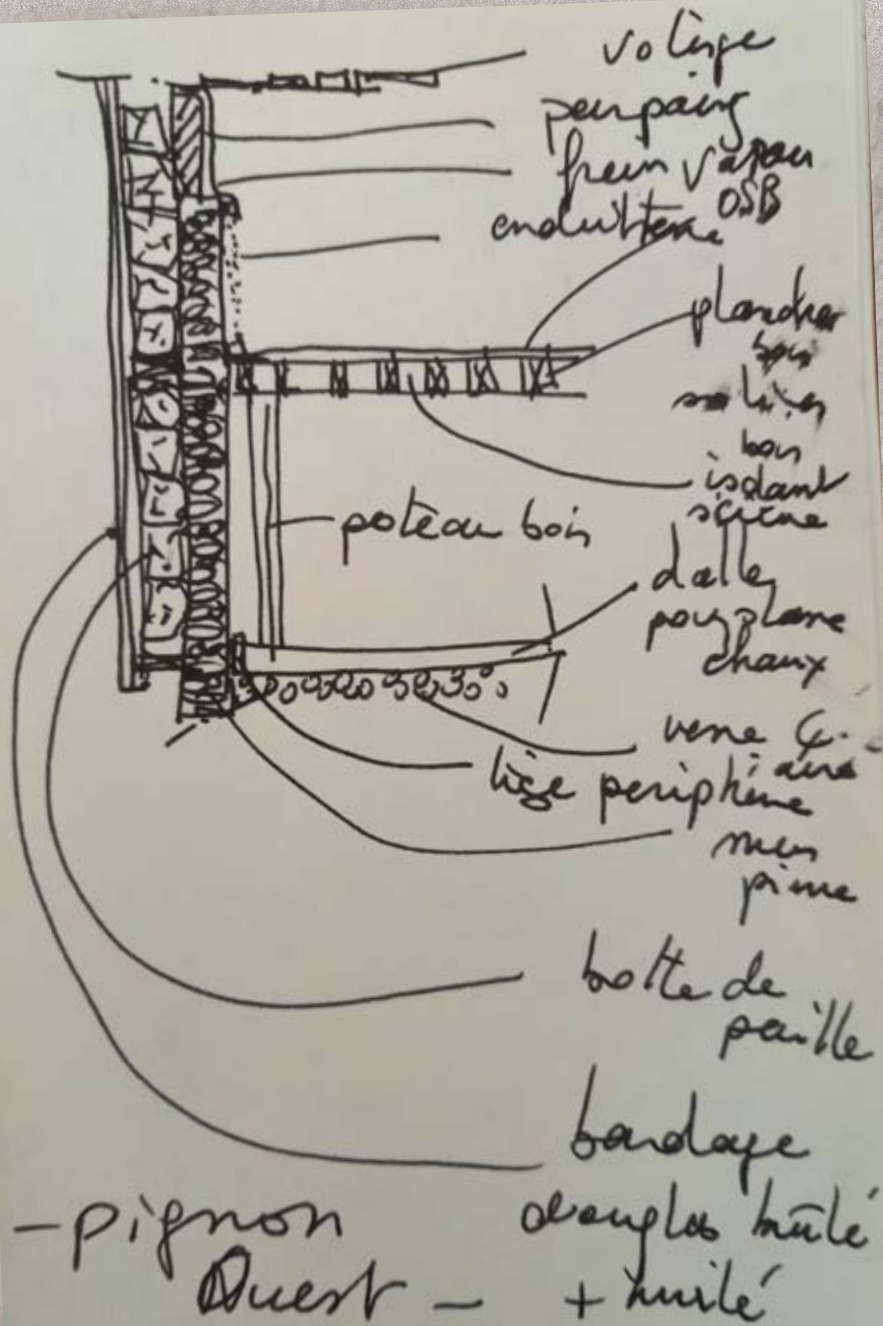 volige
parpaing
frein vapeur
OSB
enduit terre
plancher
bois
solives
bois
isolant
poteau bois
dalle
pouzzolane
chaux
verre
liège périphérie
mur
pierre
botte de
paille
bardage
douglas brûlé
+ huilé
- pignon
Ouest -